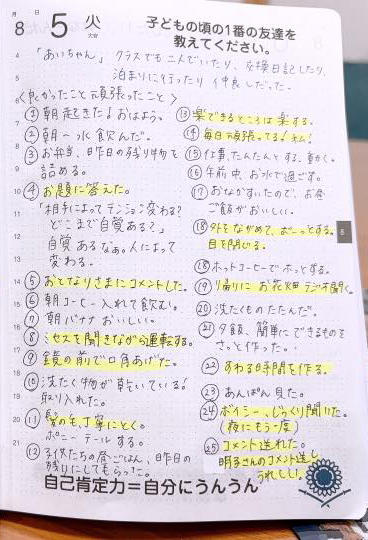 月 日
8 5 火
大安
子どもの頃の1番の友達を
教えてください。
「あいちゃん」クラスでも二人でいたり、交換日記したり、
泊まりに行ったり 仲良しだった。
<良かったこと 頑張ったこと>
①朝起きた!おはよう。
②朝一 水飲んだ。
③お弁当、昨日の残り物を
詰める。
④お題に答えた。
「相手によってテンション変わる?
どこまで自覚ある?」
自覚あるなぁ。人によって
変わる。
⑤おとなりさまにコメントした。
⑥朝コーヒー入れて飲む。
⑦朝バナナおいしい。
⑧セスを聞きながら運転する。
⑨鏡の前で口角あげた。
⑩洗たく物が乾いている!
取り入れた。
⑪髪の毛、丁寧にとく。
ポニーテールする。
⑫子供たちの昼ごはん、昨日の
残りにしてもらった。
⑬楽できるところは楽する。
⑭毎日頑張ってる!
⑮仕事、たんたんとする、動く。
⑯午前中、お水で過ごす。
⑰おなかすいたので、お昼
ご飯がおいしい。
⑱外をながめて、ぼーっとする。
目を閉じる。
⑱ホットコーヒーでホッとする。
⑲帰りに お花畑ラジオ聞く。
⑳洗たくものたたんだ。
㉑夕飯、簡単にできるものを
さっと作った。
㉒すわる時間を作る。
㉓あんぱん見た。
㉔ボイシー、じっくり聞いた。
(夜にもう一度)
㉕コメント送れた。
明子さんのコメント返し
うれしい!
自己肯定力=自分にうんうん
8
4
5
6
7
8
9
10
11
12
13
14
15
16
17
18
19
20
21